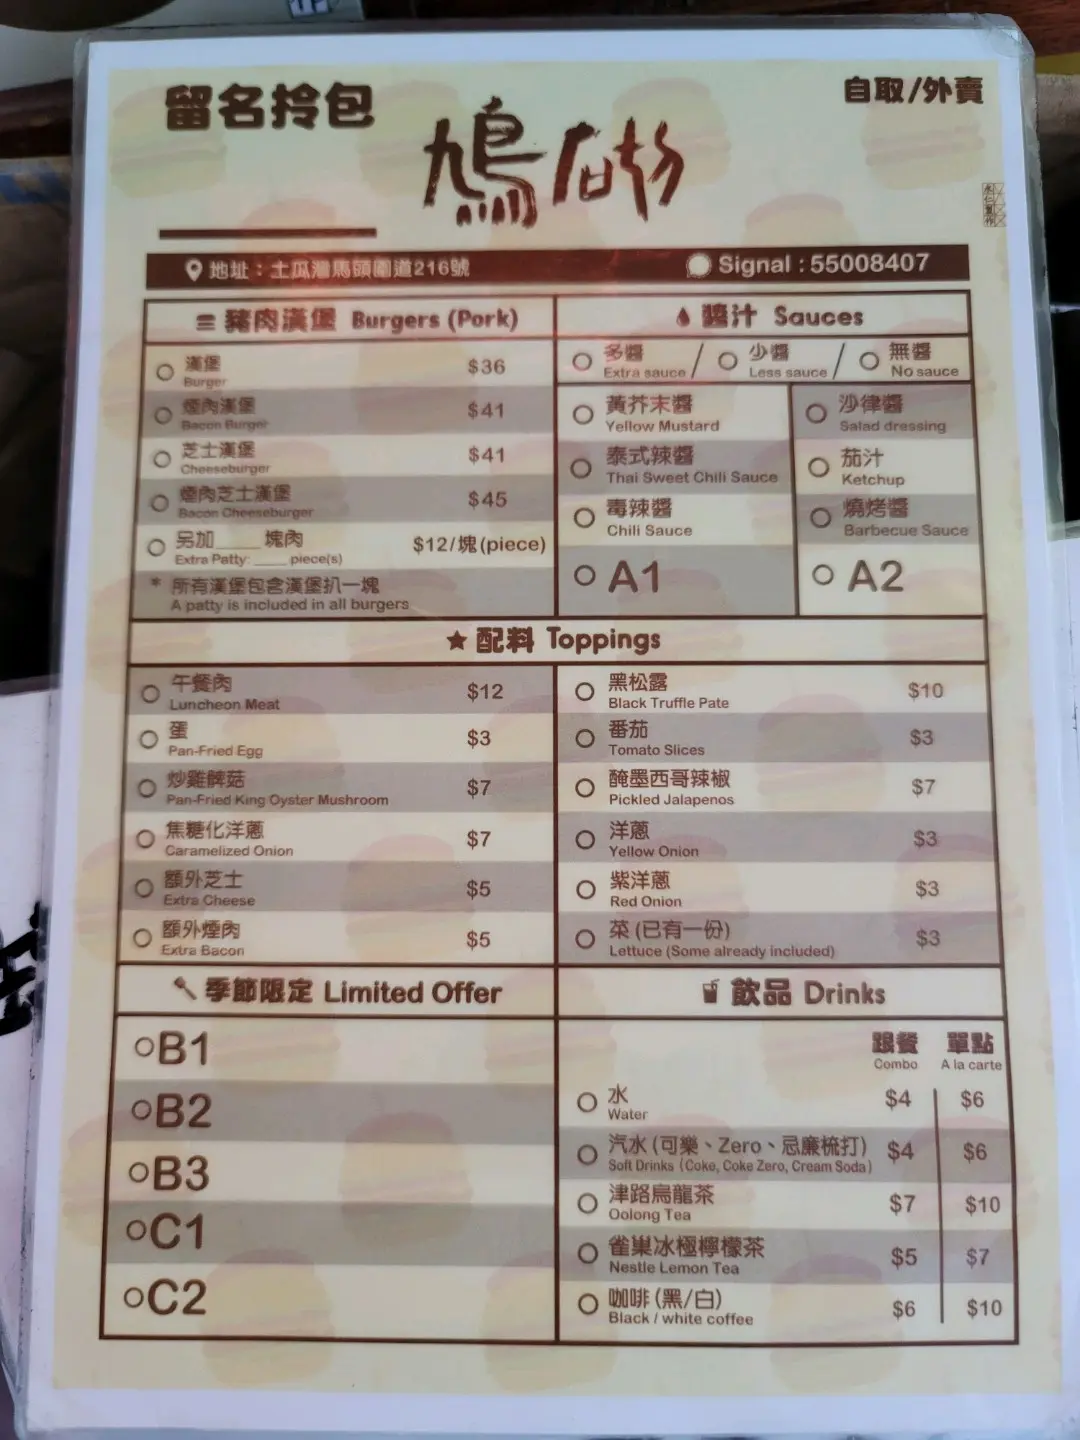 留名拎包
自取/外賣
地址：土瓜灣馬頭圍道216號
Signal : 55008407
豬肉漢堡 Burgers (Pork)
漢堡 $36
Burger
煙肉漢堡 $41
Bacon Burger
芝士漢堡 $41
Cheeseburger
煙肉芝士漢堡 $45
Bacon Cheeseburger
另加____塊肉 $12/塊(piece)
Extra Patty: ____ piece(s)
* 所有漢堡包含漢堡扒一塊
A patty is included in all burgers
醬汁 Sauces
多醬 / 少醬 / 無醬
Extra sauce Less sauce No sauce
黃芥末醬
Yellow Mustard
泰式辣醬
Thai Sweet Chili Sauce
毒辣醬
Chili Sauce
A1
沙律醬
Salad dressing
茄汁
Ketchup
燒烤醬
Barbecue Sauce
A2
配料 Toppings
午餐肉 $12
Luncheon Meat
蛋 $3
Pan-Fried Egg
炒雞髀菇 $7
Pan-Fried King Oyster Mushroom
焦糖化洋蔥 $7
Caramelized Onion
額外芝士 $5
Extra Cheese
額外煙肉 $5
Extra Bacon
黑松露 $10
Black Truffle Pate
番茄 $3
Tomato Slices
醃墨西哥辣椒 $7
Pickled Jalapenos
洋蔥 $3
Yellow Onion
紫洋蔥 $3
Red Onion
菜 (已有一份) $3
Lettuce (Some already included)
季節限定 Limited Offer
B1
B2
B3
C1
C2
飲品 Drinks
跟餐 單點
Combo A la carte
水 $4 $6
Water
汽水 (可樂、Zero、忌廉梳打) $4 $6
Soft Drinks (Coke, Coke Zero, Cream Soda)
津路烏龍茶 $7 $10
Oolong Tea
雀巢冰極檸檬茶 $5 $7
Nestle Lemon Tea
咖啡 (黑/白) $6 $10
Black / white coffee